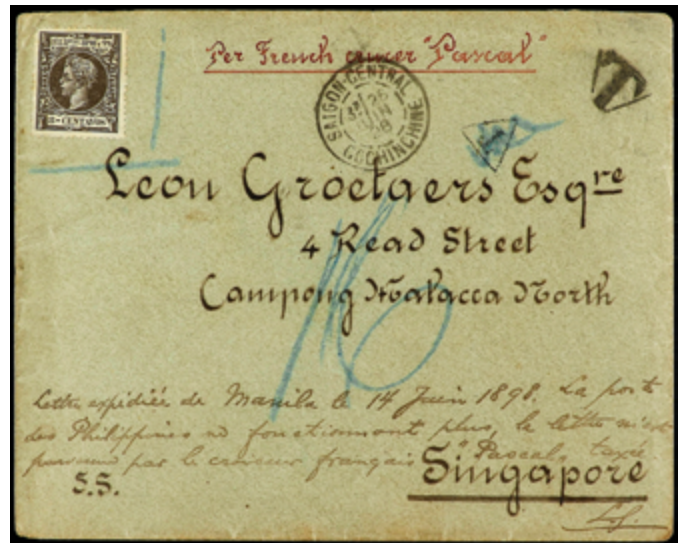 Per French cruiser "Pascal"
SAIGON-CENTRAL
JUIN
COCHINCHINE
T
T
Leon Groetaers Esqre
4 Read Street
Campong Malacca North
16
Lettre expédiée de Manila le 14 Juin 1898. La poste
des Philippines ne fonctionnant plus, la lettre m'est
parvenue par le croiseur français "Pascal" taxée.
Singapore
S.S.
L.G.